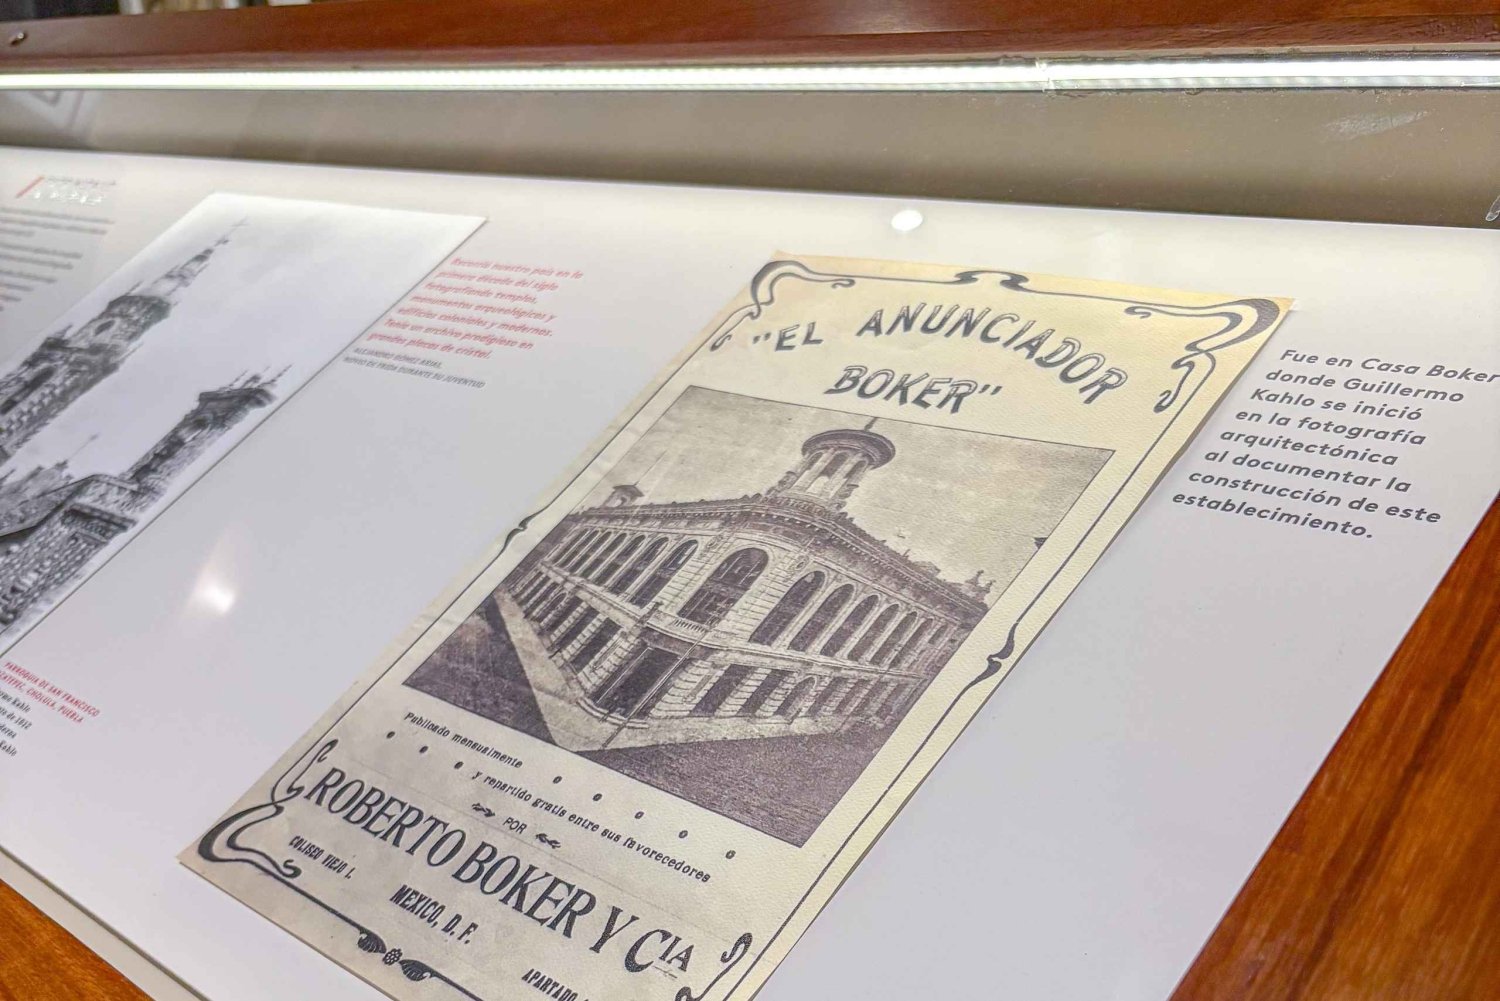 Recorrió nuestro país en la
primera década del siglo
fotografiando templos,
monumentos arqueológicos y
edificios coloniales y modernos.
Tenía un archivo prodigioso en
grandes placas de cristal.
ALEJANDRO GÓMEZ ARIAS,
NOVIO DE FRIDA DURANTE SU JUVENTUD
PARROQUIA DE SAN FRANCISCO
CHOLULA, PUEBLA
Kahlo
de 1912
Kahlo
"EL ANUNCIADOR
BOKER"
Publicado mensualmente
y repartido gratis entre sus favorecedores
POR
ROBERTO BOKER Y CIA
COLISEO VIEJO 1.
MEXICO, D. F.
APARTADO
Fue en Casa Boker
donde Guillermo
Kahlo se inició
en la fotografía
arquitectónica
al documentar la
construcción de este
establecimiento.